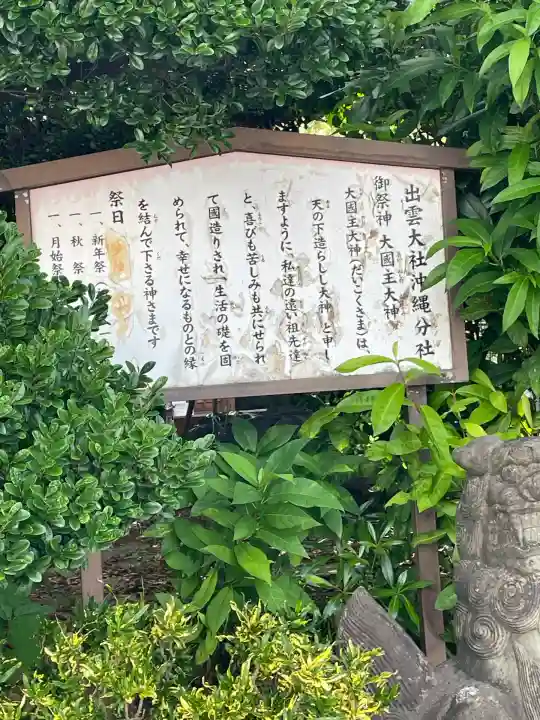 出雲大社沖縄分社
御祭神 大國主大神
大國主大神(だいこくさま)は、
天の下造らしし大神 と申し
ますように、私達の遠い祖先達
と、喜びも苦しみも共にせられ
て國造りされ 生活の礎を固
められて、幸せになるものとの縁
を結んで下さる神さまです
祭日
一、新年祭
一、秋祭
一、月始祭